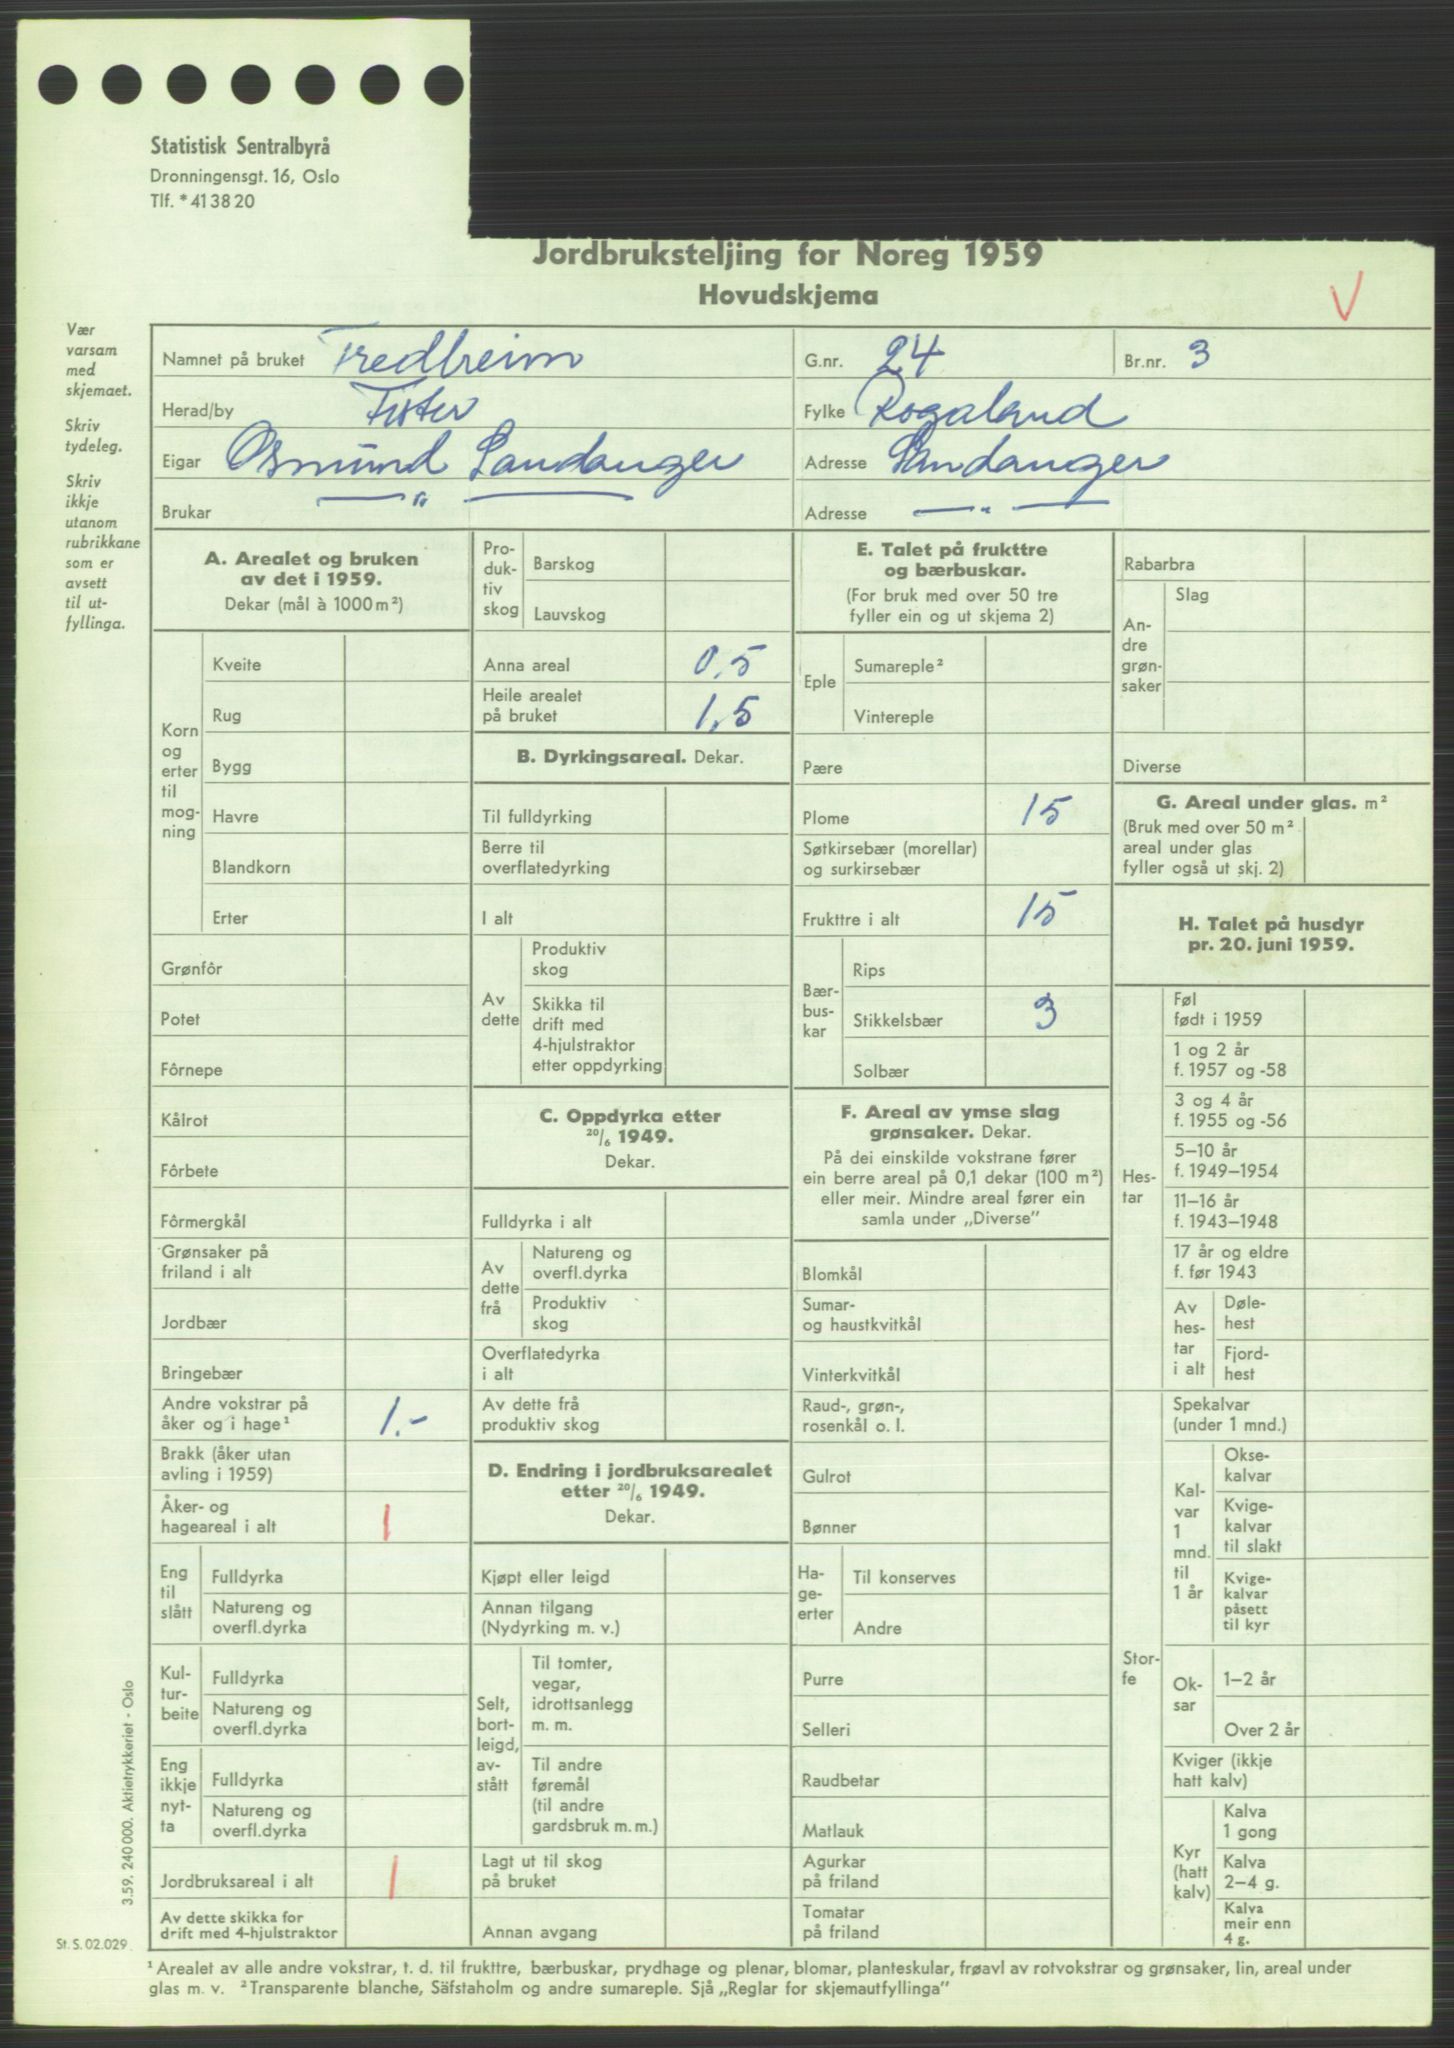 Statistisk Sentralbyrå
Dronningensgt. 16, Oslo
Tlf. * 41 38 20
Jordbruksteljing for Noreg 1959
Hovudskjema
V
Vær
varsam
med
skjemaet.
Skriv
tydeleg.
Skriv
ikkje
utanom
rubrikkane
som er
avsett
til ut-
fyllinga.
Namnet på bruket Fredheim G.nr. 24 Br.nr. 3
Herad/by Fister Fylke Rogaland
Eigar Osmund Sandanger Adresse Sandanger
Brukar — " — Adresse — " —
A. Arealet og bruken
av det i 1959.
Dekar (mål à 1000 m²)
Korn
og
erter
til
mog-
ning
Kveite
Rug
Bygg
Havre
Blandkorn
Erter
Grønfôr
Potet
Fôrnepe
Kålrot
Fôrbete
Fôrmergkål
Grønsaker på
friland i alt
Jordbær
Bringebær
Andre vokstrar på
åker og i hage¹ 1.-
Brakk (åker utan
avling i 1959)
Åker- og
hageareal i alt 1
Eng
til
slått
Fulldyrka
Natureng og
overfl.dyrka
Kul-
tur-
beite
Fulldyrka
Natureng og
overfl.dyrka
Eng
ikkje
nyt-
ta
Fulldyrka
Natureng og
overfl.dyrka
Jordbruksareal i alt 1
Av dette skikka for
drift med 4-hjulstraktor
Pro-
duk-
tiv
skog
Barskog
Lauvskog
Anna areal 0,5
Heile arealet
på bruket 1,5
B. Dyrkingsareal. Dekar.
Til fulldyrking
Berre til
overflatedyrking
I alt
Av
dette
Produktiv
skog
Skikka til
drift med
4-hjulstraktor
etter oppdyrking
C. Oppdyrka etter
20/6 1949.
Dekar.
Fulldyrka i alt
Av
dette
frå
Natureng og
overfl.dyrka
Produktiv
skog
Overflatedyrka
i alt
Av dette frå
produktiv skog
D. Endring i jordbruksarealet
etter 20/6 1949.
Dekar.
Kjøpt eller leigd
Annan tilgang
(Nydyrking m. v.)
Selt,
bort-
leigd,
av-
stått
Til tomter,
vegar,
idrottsanlegg
m. m.
Til andre
føremål
(til andre
gardsbruk m. m.)
Lagt ut til skog
på bruket
Annan avgang
E. Talet på frukttre
og bærbuskar.
(For bruk med over 50 tre
fyller ein og ut skjema 2)
Eple
Sumareple²
Vintereple
Pære
Plome 15
Søtkirsebær (morellar)
og surkirsebær
Frukttre i alt 15
Bær-
bus-
kar
Rips
Stikkelsbær 3
Solbær
F. Areal av ymse slag
grønsaker. Dekar.
På dei einskilde vokstrane fører
ein berre areal på 0,1 dekar (100 m²)
eller meir. Mindre areal fører ein
samla under „Diverse”
Blomkål
Sumar-
og haustkvitkål
Vinterkvitkål
Raud-, grøn-,
rosenkål o. l.
Gulrot
Bønner
Ha-
ge-
erter
Til konserves
Andre
Purre
Selleri
Raudbetar
Matlauk
Agurkar
på friland
Tomatar
på friland
Rabarbra
An-
dre
grøn-
saker
Slag
Diverse
G. Areal under glas. m²
(Bruk med over 50 m²
areal under glas
fyller også ut skj. 2)
H. Talet på husdyr
pr. 20. juni 1959.
Hes-
tar
Føl
født i 1959
1 og 2 år
f. 1957 og -58
3 og 4 år
f. 1955 og -56
5–10 år
f. 1949–1954
11–16 år
f. 1943–1948
17 år og eldre
f. før 1943
Av
hes-
tar
i alt
Døle-
hest
Fjord-
hest
Stor-
fe
Spekalvar
(under 1 mnd.)
Kal-
var
1
mnd.
til
1 år
Okse-
kalvar
Kvige-
kalvar
til slakt
Kvige-
kalvar
påsett
til kyr
Ok-
sar
1–2 år
Over 2 år
Kviger (ikkje
hatt kalv)
Kyr
(hatt
kalv)
Kalva
1 gong
Kalva
2–4 g.
Kalva
meir enn
4 g.
3.59. 240 000. Aktietrykkeriet - Oslo
St. S. 02.029
¹ Arealet av alle andre vokstrar, t. d. til frukttre, bærbuskar, prydhage og plenar, blomar, planteskular, frøavl av rotvokstrar og grønsaker, lin, areal under
glas m. v. ² Transparente blanche, Säfstaholm og andre sumareple. Sjå „Reglar for skjemautfyllinga”